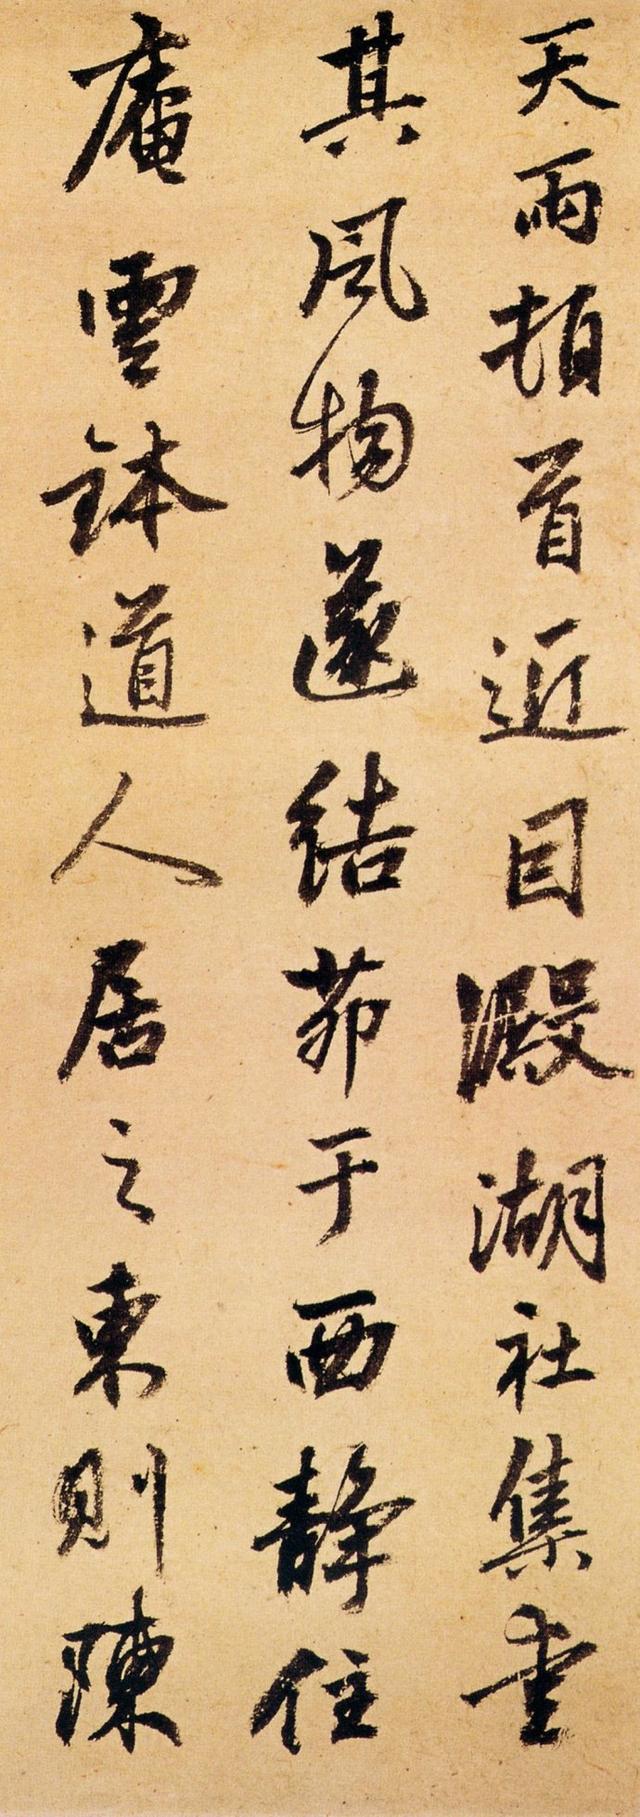 天雨頓首近因澱湖社集愛
其風物遂結茆于西靜住
庵雲鉢道人居之東則陳